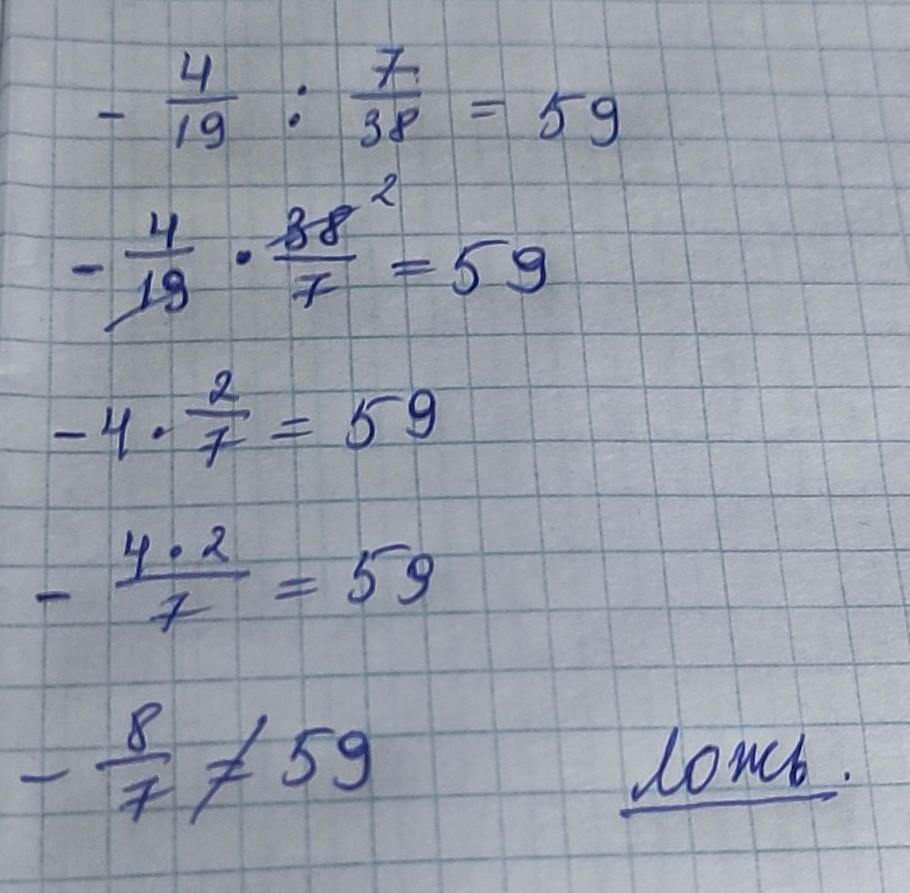 - 4/19 : 7/38 = 59
- 4/19 · 38/7 2 = 59
- 4 · 2/7 = 59
- 4 · 2/7 = 59
- 8/7 ≠ 59
ложь.